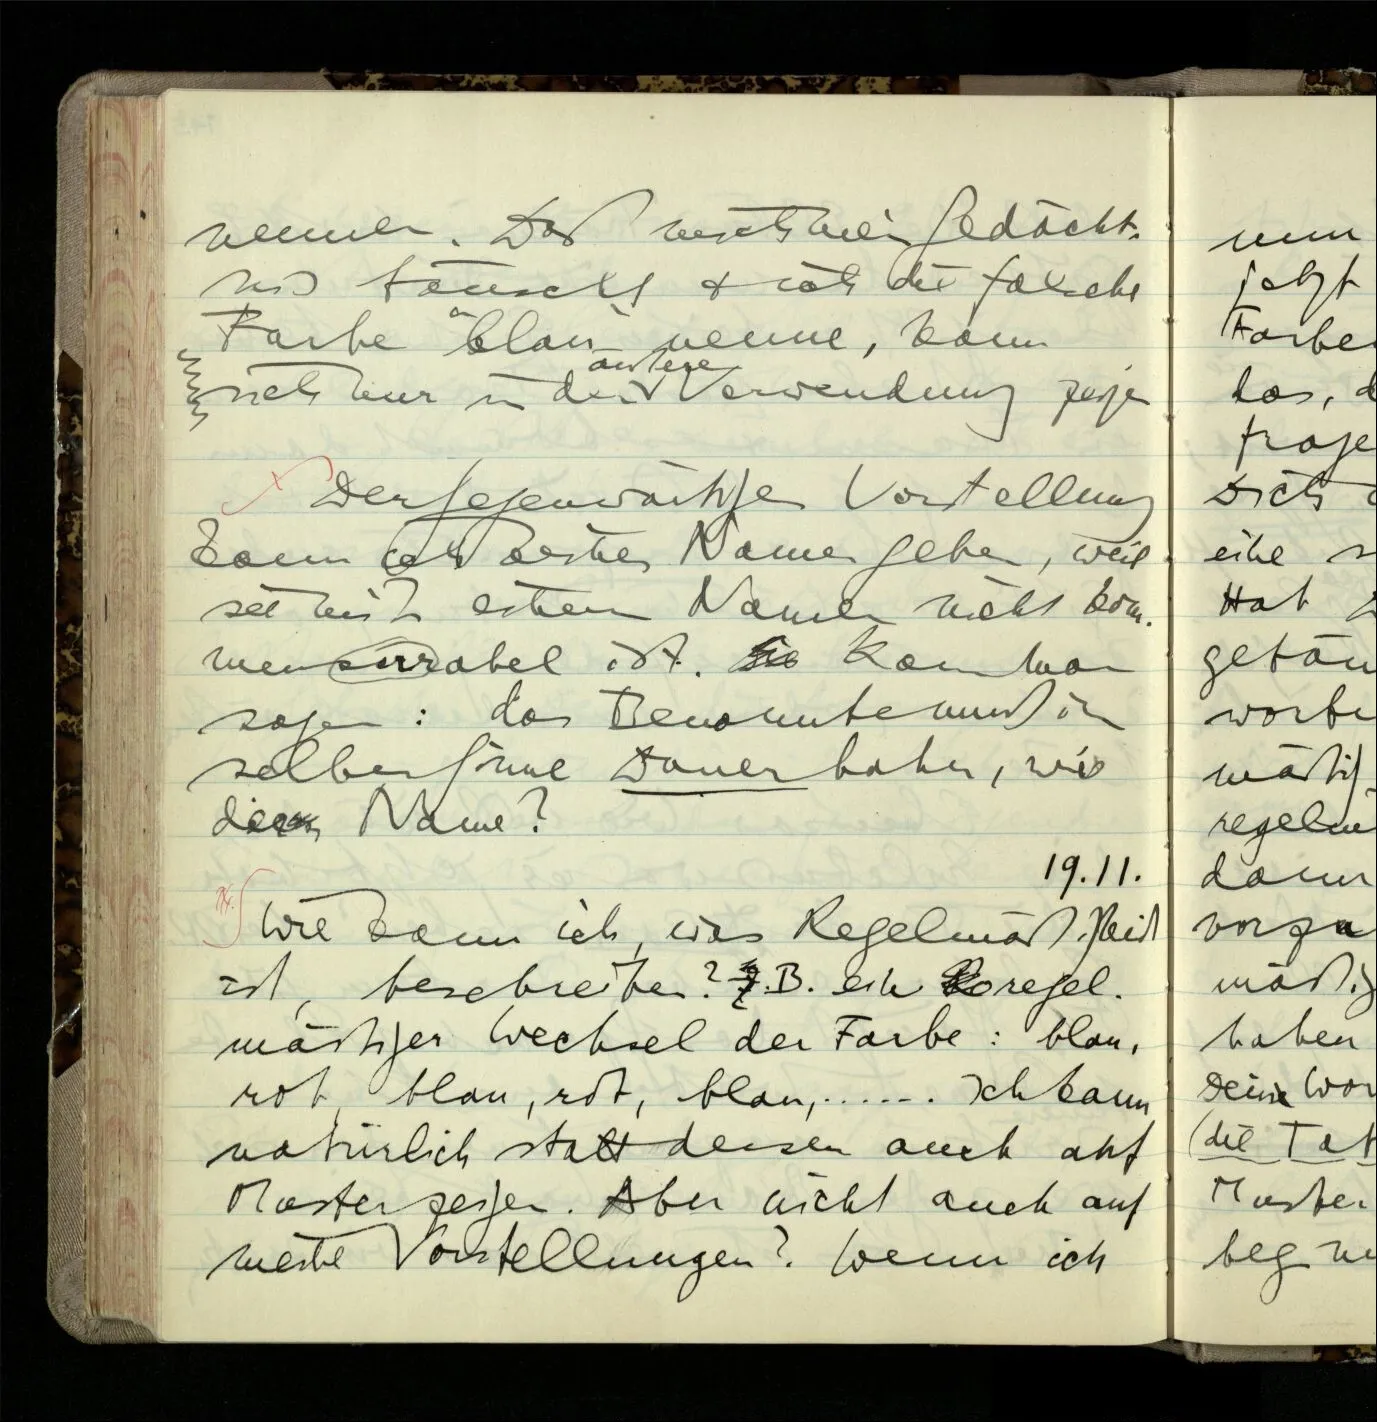 nennen. Daß mich mein Gedächt-
nis täuscht & ich die falsche
Farbe "blau" nenne, kann
andere
sich nur in der Verwendung zeigen
Der gegenwärtigen Vorstellung
kann ich keinen Namen geben, weil
sie mit einem Namen nicht kom-
mensurabel ist. Kann man
sagen: das Benannte muß in
selben Sinne Dauer haben, wie
der Name?
19.11.
Wie kann ich, was Regelmäßigkeit
ist, beschreiben? z.B. ein regel-
mäßiger Wechsel der Farbe: blau,
rot, blau, rot, blau,...... Ich kann
natürlich statt dessen auch auf
Muster zeigen. Aber nicht auch auf
meine Vorstellungen? Wenn ich
nun
jetzt
Farbe
das, d
frage
Dich
eine s
Hat
getäu
worte
mäßig
regelm
dann
vorzu
mäßig
haben
Deine Wor
(die Tat
Muster
beg